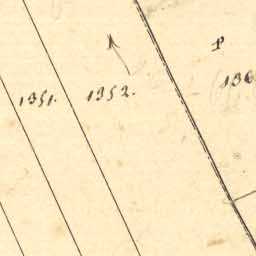 1351.
1352.
P
136